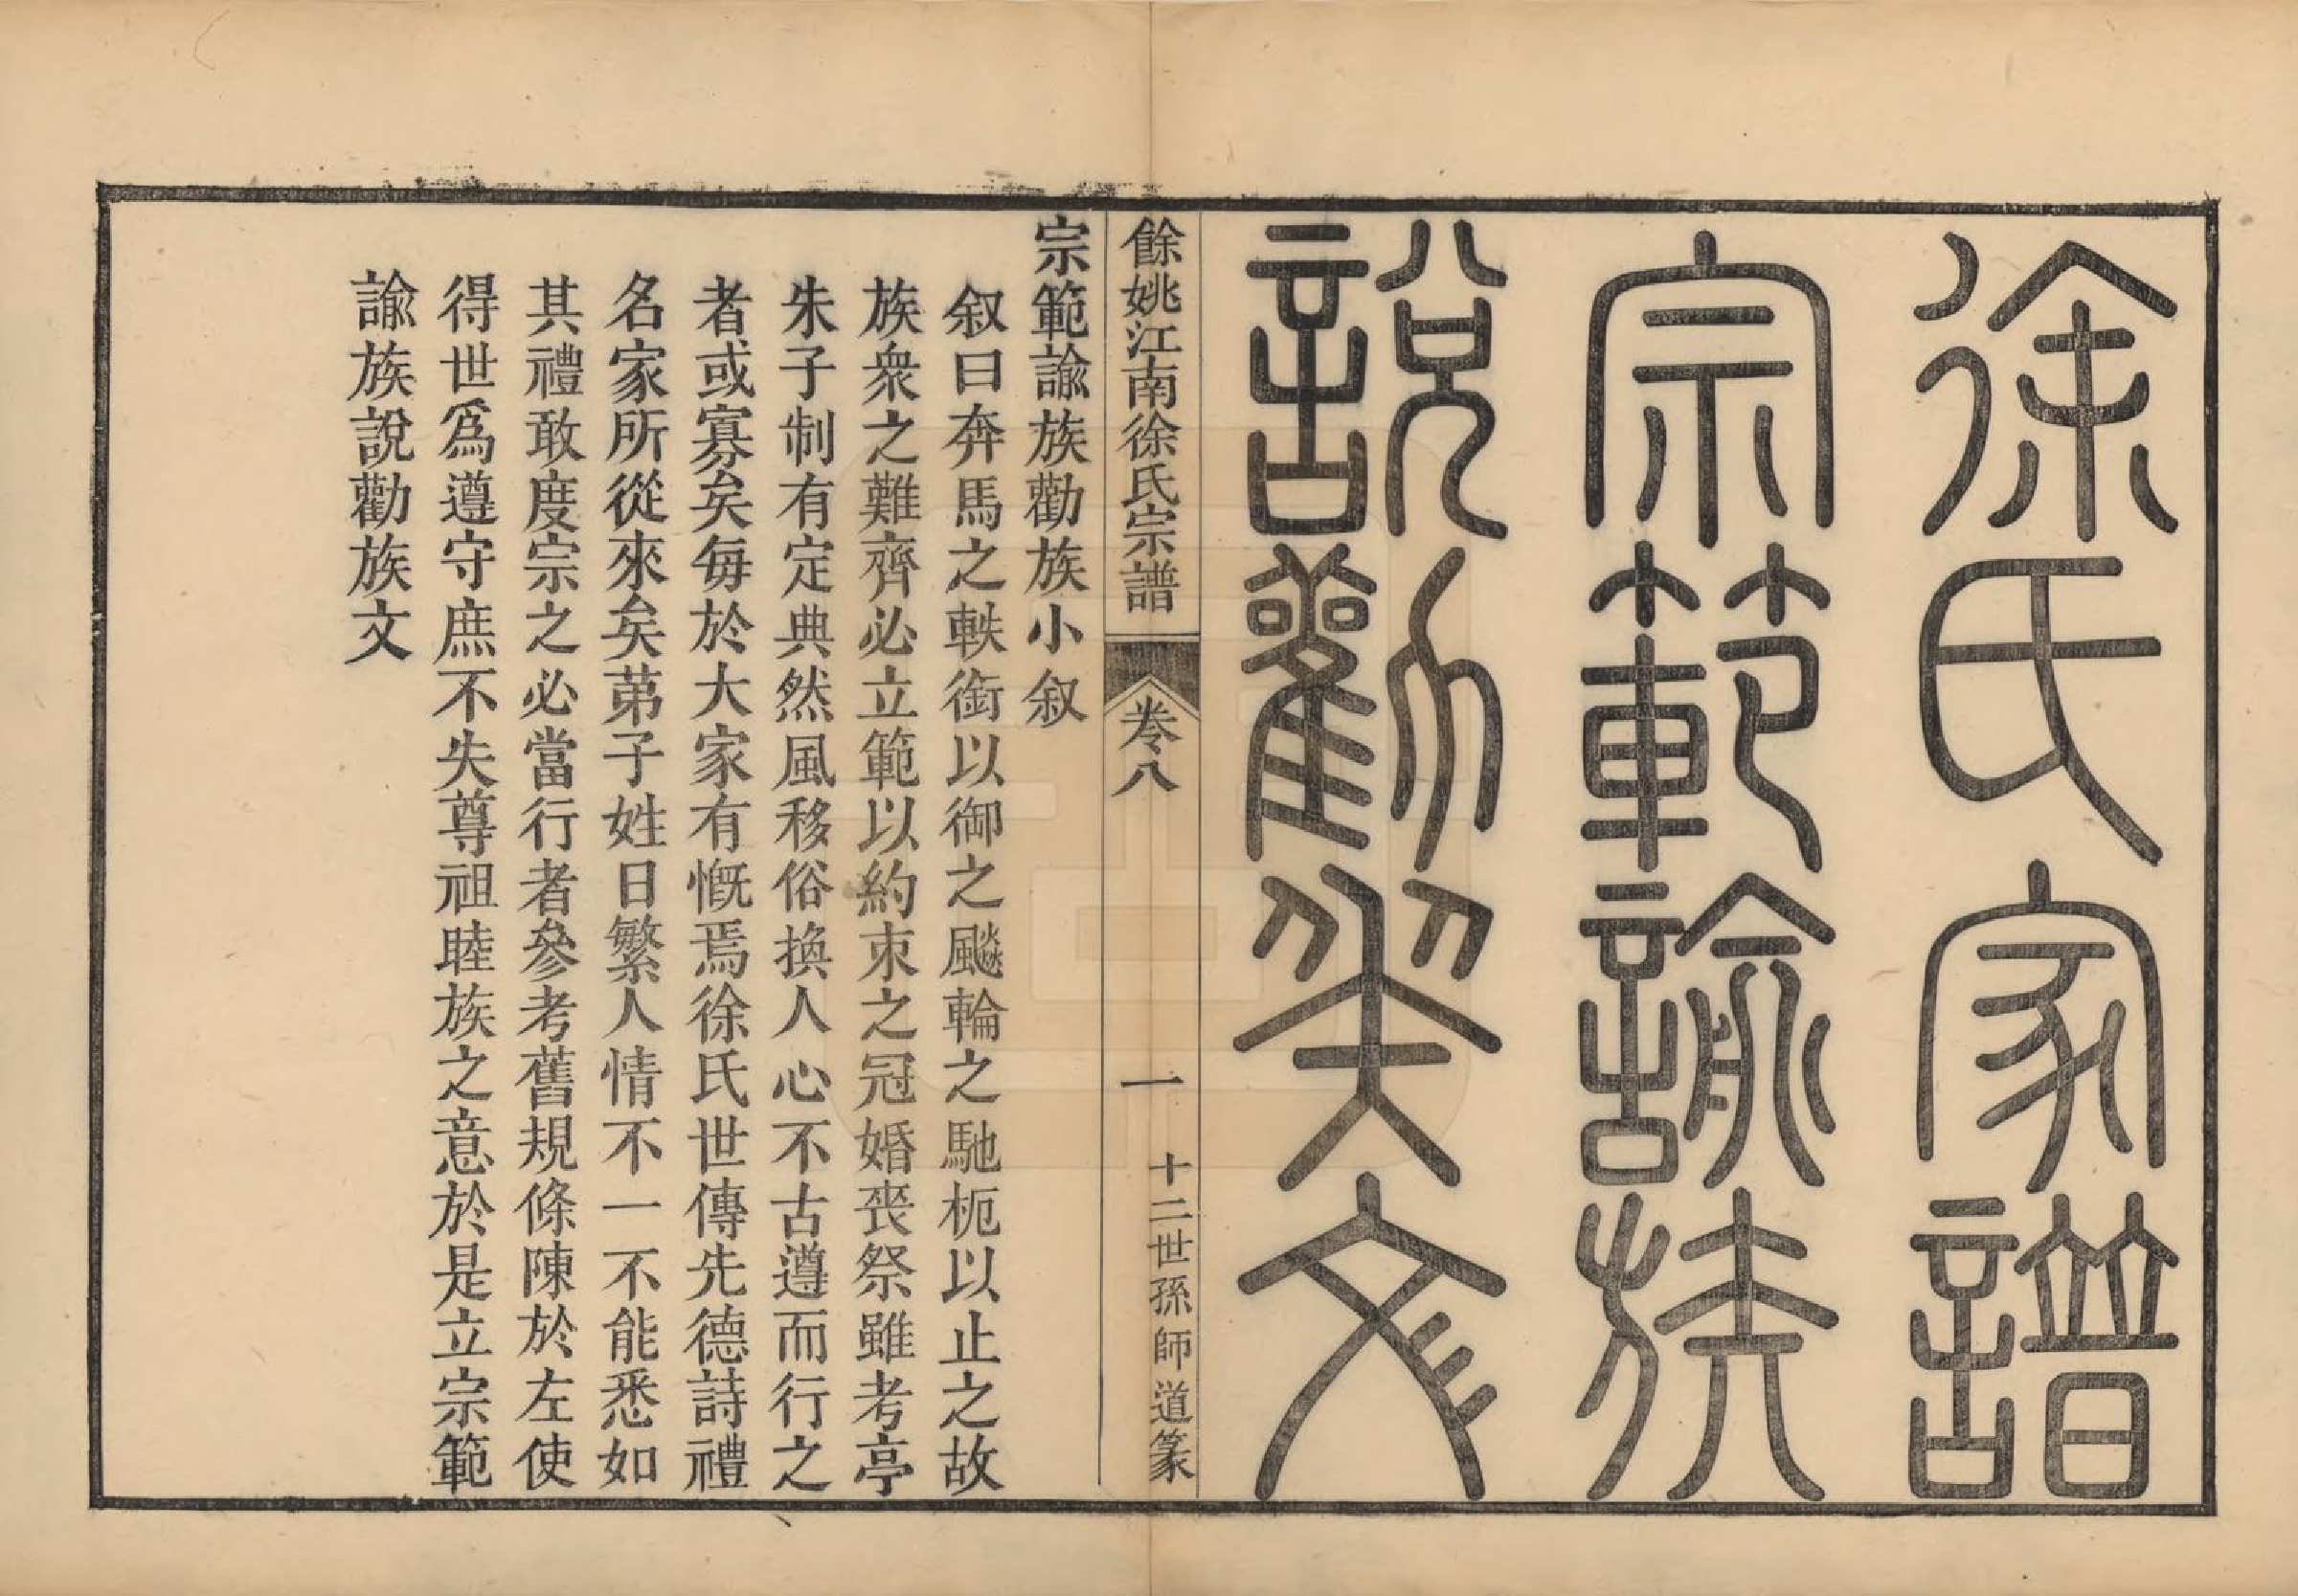 徐氏家譜
宗範諭族
說勸族文
餘姚江南徐氏宗譜 卷八 一 十二世孫師道篆
宗範諭族勸族小叙
叙曰奔馬之軼銜以御之飈輪之馳枙以止之故
族衆之難齊必立範以約束之冠婚喪祭雖考亭
朱子制有定典然風移俗換人心不古遵而行之
者或寡矣每於大家有慨焉徐氏世傳先德詩禮
名家所從來矣苐子姓日繁人情不一不能悉如
其禮敢度宗之必當行者參考舊規條陳於左使
得世爲遵守庶不失尊祖睦族之意於是立宗範
諭族說勸族文